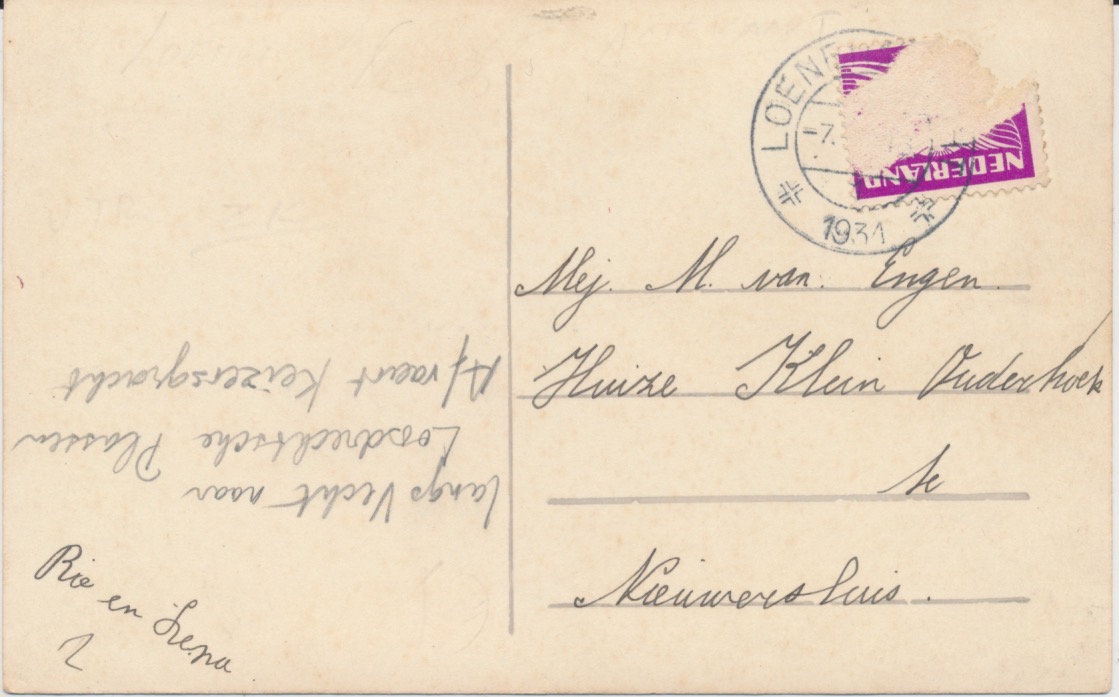 LOENE
=7.
1931
NEDERLAND
Mej. M. van. Engen.
Huize Klein Ouderhoek
te
Nieuwersluis.
langs Vecht naar
Loosdrechtsche Plassen
Afvaart Keizersgracht
Rie en Lena